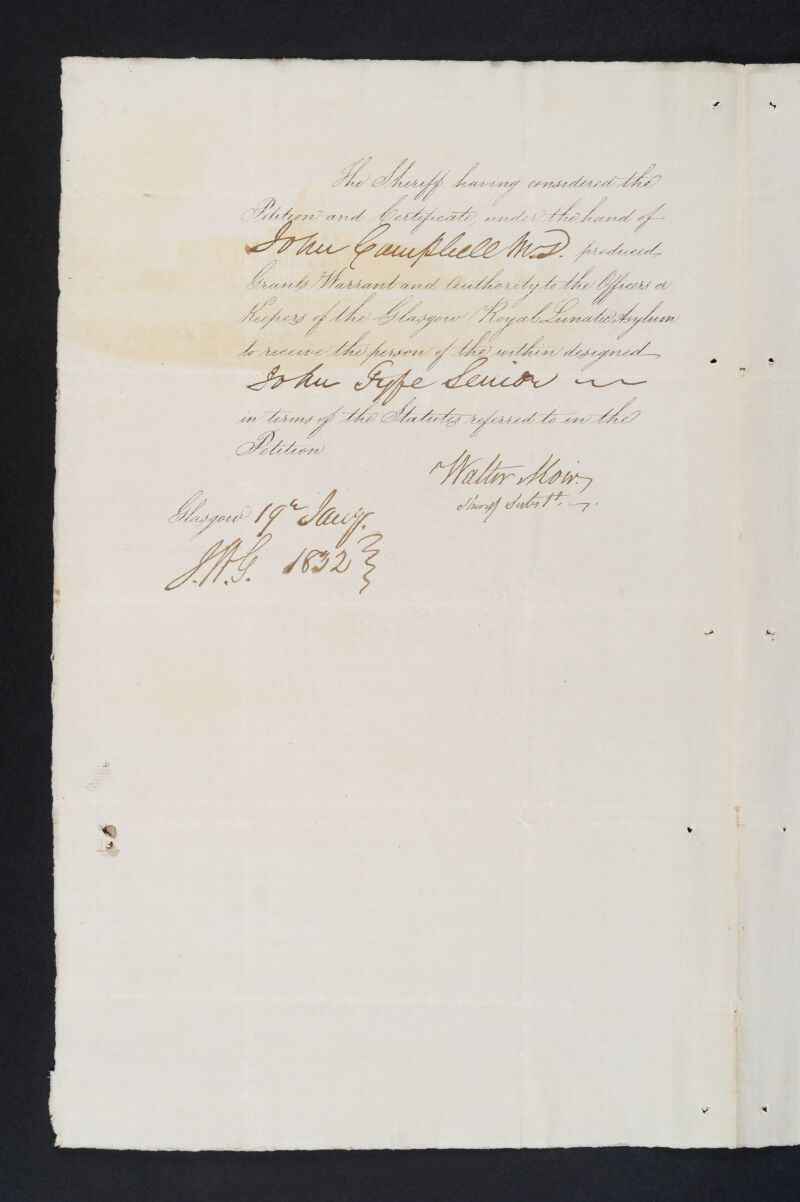 The Sheriff having considered the
Petition and Certificate, under the hand of
John Campbell M.D. produced
Grants Warrant and Authority to the Officers or
Keepers of the Glasgow Royal Lunatic Asylum
to receive the person of the within designed
John Fyfe Senior
in terms of the Statutes referred to in the
Petition
Walter Moir,
Sheriff Subst.
Glasgow 19th Jany.
1832